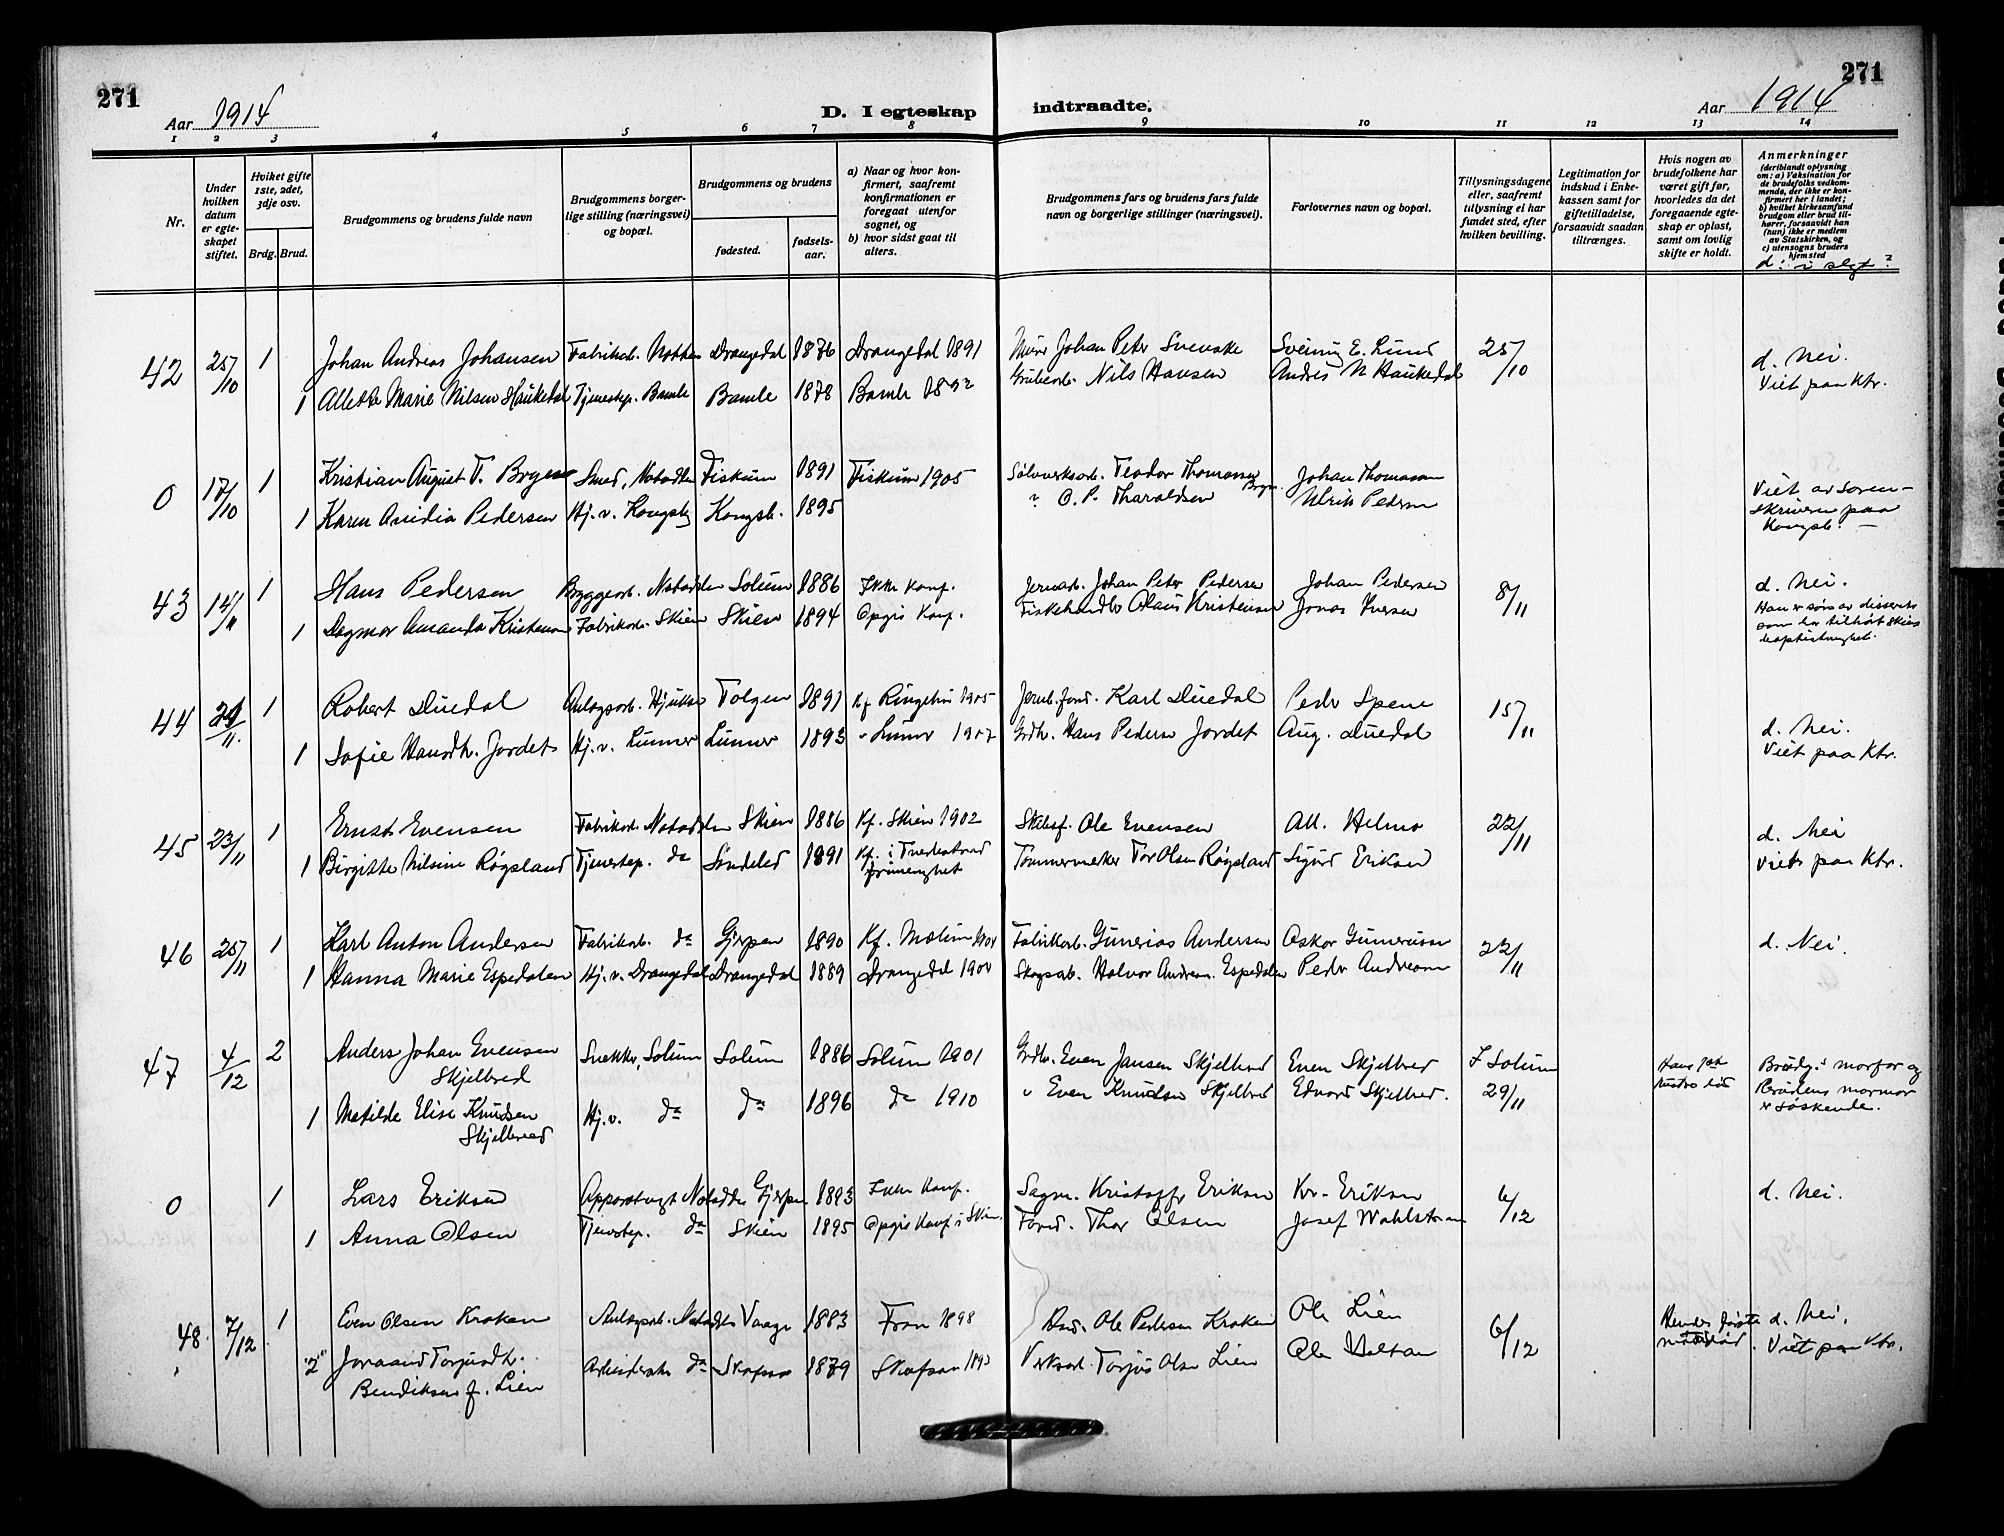 271
Aar 1914
D. I egteskap
indtraadte.
Aar 1914
271
1 2 3 4 5 6 7 8 9 10 11 12 13 14
Nr.
Under hvilken datum er egteskapet stiftet.
Hviket gifte 1ste, 2det, 3dje osv.
Brdg. Brud.
Brudgommens og brudens fulde navn
Brudgommens borgerlige stilling (næringsvei) og bopæl.
Brudgommens og brudens
fødested.
fødselsaar.
a) Naar og hvor konfirmert, saafremt konfirmationen er foregaat utenfor sognet, og
b) hvor sidst gaat til alters.
Brudgommens fars og brudens fars fulde navn og borgerlige stillinger (næringsvei).
Forlovernes navn og bopæl.
Tillysningsdagene eller, saafremt tillysning ei har fundet sted, efter hvilken bevilling.
Legitimation for indskud i Enkekassen samt for giftetilladelse, forsaavidt saadan tiltrænges.
Hvis nogen av brudefolkene har været gift før, hvorledes da det foregaaende egteskap er opløst, samt om lovlig skifte er holdt.
Anmerkninger
(deriblandt oplysning om: a) Vaksination for de brudefolks vedkommende, der ikke er konfirmert her i landet;
b) hvilket kirkesamfund brudgom eller brud tilhører, forsaavidt han (hun) ikke er medlem av Statskirken, og
c) utensogns bruders hjemsted
d: i slgt?
42 25/10 1 Johan Andreas Johansen Fabrikarb. Drangedal 1876 Drangedal 1891 Murer Johan Peter Svenske Sveinug E. Lund 25/10 d. Nei.
1 Allette Marie Nilsen Haukedal Tjenestep. Bamle Bamle 1878 Bamle 1892 Grubearb. Nils Hansen Andres N Haukedal Viet paa Ktr.
0 17/10 1 Kristian August T. Smed, Notodden Fiskum 1891 Fiskum 1905 Sølvverksarb. Teodor Thomassen Johan Thomassen Viet av Soren-
1 Karen Pedersen Hj. v. Kongsbg Kongsb. 1895 ? O. P. Tharaldsen Ulrik Pedersen skriveren paa
Kongsb. —
43 14/11 1 Hans Pedersen Byggearb. Notodden Solum 1886 Ikke Konf. Jernarb. Johan Peter Pedersen Johan Pedersen 8/11 d. Nei.
1 Dagmar Amanda Kristensen Fabrikarb. Skien Skien 1894 Opgis Konf. Fiskehandler Olaus Kristensen Jonas Iversen Han er søn av dissenter
som har tilhørt Skiens
baptistmenighet.
44 29/11. 1 Robert Duedal Anlagsarb. Hjukse Tolgen 1891 Kf Ringebu 1905 Jernb.fond. Karl Duedal Peder Spene 15/11 d. Nei.
1 Sofie Hansdtr. Jordet Hj. v. Lunner Lunner 1893 " Lunner 1907 Grdbr. Hans Pedersen Jordet Aug. Duedal Viet paa Ktr.
45 23/11 1 Ernst Evensen Fabrikarb. Notodden Skien 1886 Kf. Skien 1902 Ole Evensen Alf. Helmo 22/11 d. Nei
1 Birgitte Nilsine Røysland Tjenestep. do Søndeled 1891 Kf. i Tvedestrand Tømmermerker Tor Olsen Røysland Sigurd Eriksen Viet paa Ktr.
frimenighet
46 25/11 1 Karl Anton Andersen Fabrikarb. do Gjerpen 1890 Kf. Mælum 1904 Fabrikarb. Gunerius Andersen Oskar Gunerussen 22/11 d. Nei.
1 Hanna Marie Espedalen Hj. v. Drangedal Drangedal 1889 Drangedal 1904 Skogsarb. Halvor Andreas. Espedalen Peder Andreasen
47 4/12 2 Anders Johan Evensen Snekker, Solum Solum 1886 Solum 1901 Grdbr. Even Jansen Skjelbred Even Skjelbred I Solum Hans 1ste Brudg.s morfar og
Skjelbred hustru død Brudens mormor
1 Matilde Elise Knudsen Hj. v. do do 1896 do 1910 " Even Knudsen Skjelbred Edvard Skjelbred. 29/11 er søskende.
Skjelbred
0 1 Lars Eriksen Notodden Gjerpen 1893 Ikke Konf. Sagm. Kristoffer Eriksen Kr. Eriksen 6/12 d. Nei.
1 Anna Olsen Tjenestep. do Skien 1895 Opgis Konf i Skien. Thor Olsen Josef Wahlstrøm
48. 7/12 1 Even Olsen Kroken Anlagsarb. Notodden Vaage 1883 Fron 1898 Ole Pedersen Kroken Ole Lien 6/12 Hendes første d. Nei.
"2" Joraand Torjusdtr. do 1879 Skafsaa 1893 Torjus Olsen Lien mand død. Viet paa Ktr.
Bendiksen f. Lien